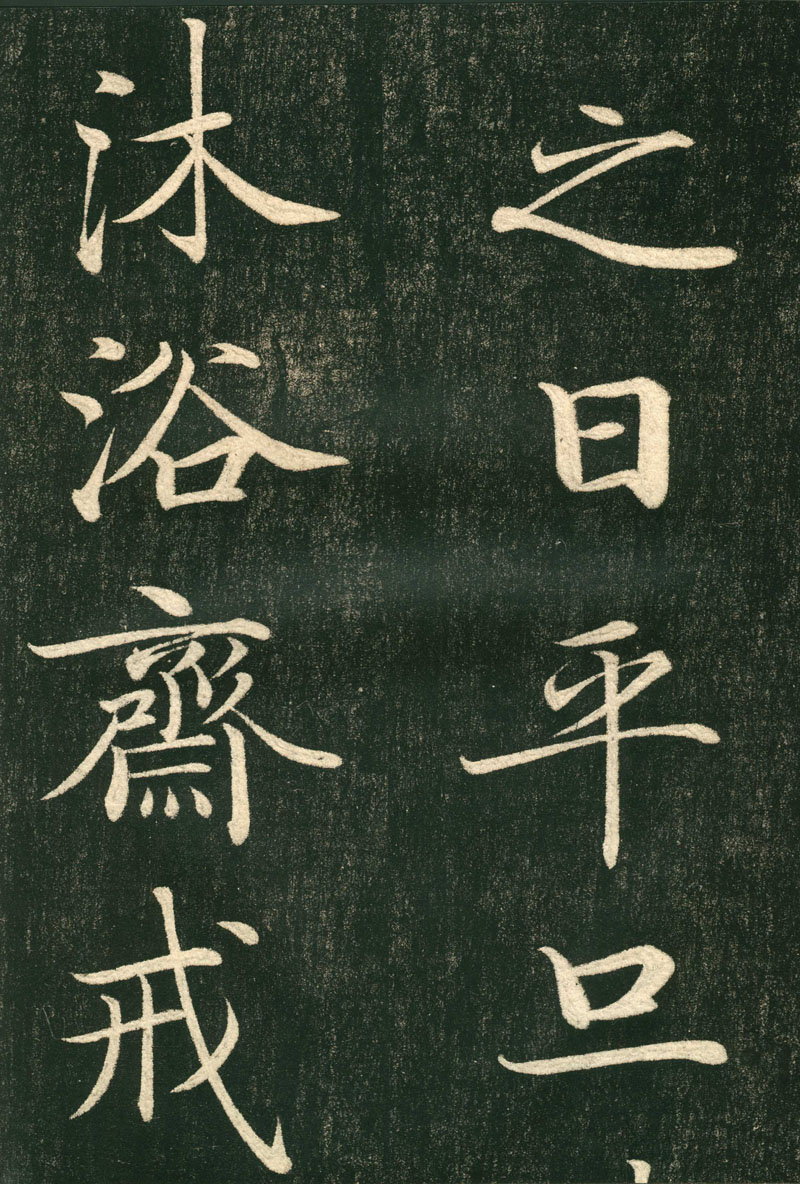 之日平旦
沐浴齋戒